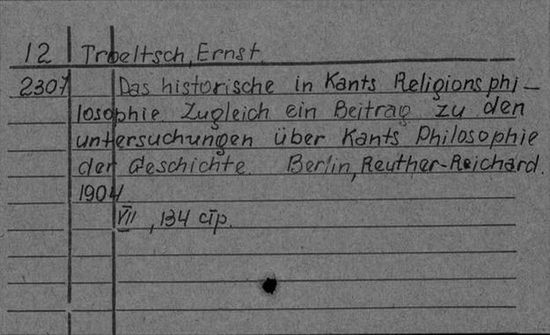 12 Troeltsch, Ernst.
2307 Das historische in Kants Religionsphi-
losophie. Zugleich ein Beitrag zu den
untersuchungen über Kants Philosophie
der Geschichte. Berlin, Reuther-Reichard.
1904
VII, 134 cтр.